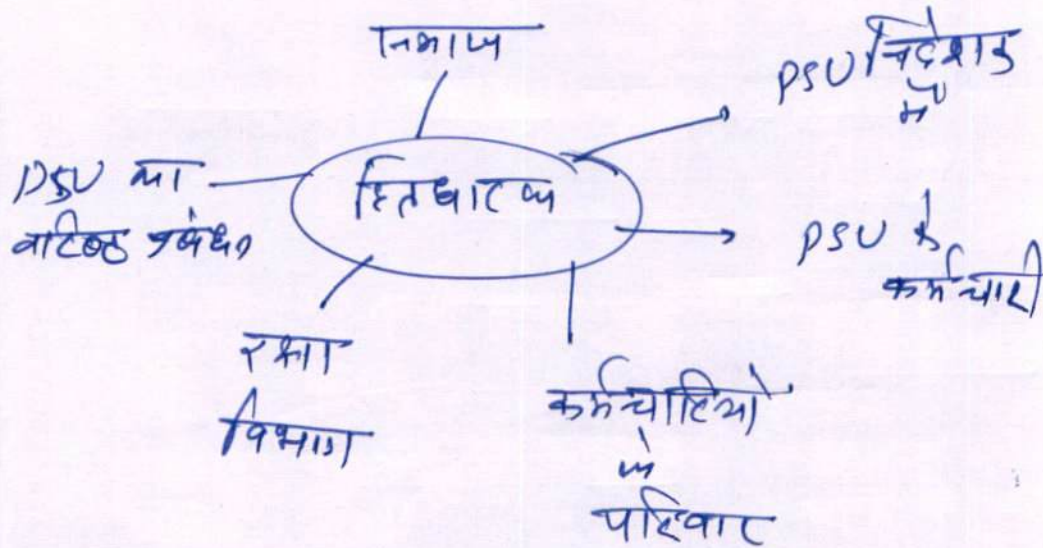 PSU निदेशक
में
PSU का
वरिष्ठ प्रबंधन
हितधारक
PSU के
कर्मचारी
रक्षा
विभाग
कर्मचारियों
के
परिवार